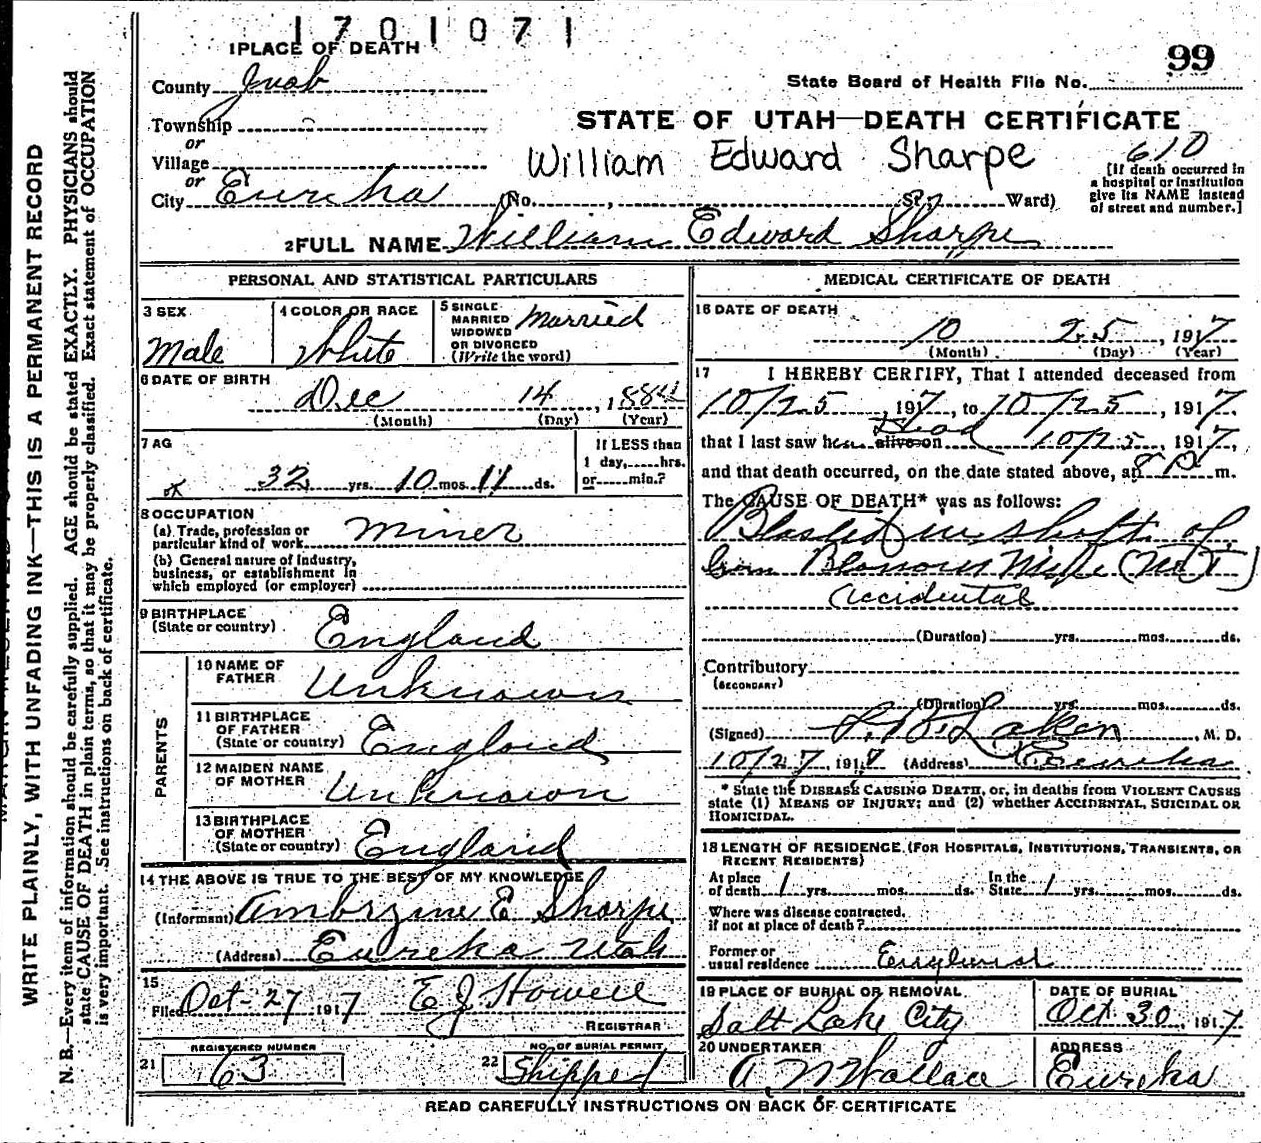 1701071
1 PLACE OF DEATH
99
County Juab
State Board of Health File No.
Township
STATE OF UTAH—DEATH CERTIFICATE
or
Village
William Edward Sharpe
610
or
City Eureka (No. , St., Ward)
[If death occurred in
a hospital or institution
give its NAME instead
of street and number.]
2 FULL NAME William Edward Sharpe
PERSONAL AND STATISTICAL PARTICULARS
3 SEX
Male
4 COLOR OR RACE
White
5 SINGLE
MARRIED
WIDOWED
OR DIVORCED
(Write the word)
Married
6 DATE OF BIRTH
Dec 14, 1884
(Month) (Day) (Year)
7 AG
32 yrs. 10 mos. 11 ds.
If LESS than
1 day,......hrs.
or......min.?
8 OCCUPATION
(a) Trade, profession or
particular kind of work Miner
(b) General nature of industry,
business, or establishment in
which employed (or employer)
9 BIRTHPLACE
(State or country) England
PARENTS
10 NAME OF
FATHER Unknown
11 BIRTHPLACE
OF FATHER
(State or country) England
12 MAIDEN NAME
OF MOTHER Unknown
13 BIRTHPLACE
OF MOTHER
(State or country) England
14 THE ABOVE IS TRUE TO THE BEST OF MY KNOWLEDGE
(Informant) Ambrzine E Sharpe
(Address) Eureka Utah
15
Filed Oct-27 1917 E J Howell
REGISTRAR
21 REGISTERED NUMBER
63
22 NO. OF BURIAL PERMIT
Shipped
MEDICAL CERTIFICATE OF DEATH
16 DATE OF DEATH
10 25, 1917
(Month) (Day) (Year)
17 I HEREBY CERTIFY, That I attended deceased from
10/25, 1917, to 10/25, 1917,
Dead
that I last saw h alive on 10/25, 1917,
and that death occurred, on the date stated above, at 8 P m.
The CAUSE OF DEATH* was as follows:
Blasted in shaft of
Iron Blossom Mine (No 1)
Accidental
(Duration) yrs. mos. ds.
Contributory
(SECONDARY)
(Duration) yrs. mos. ds.
(Signed) Laken, M. D.
10/27, 1917 (Address) Eureka
* State the DISEASE CAUSING DEATH, or, in deaths from VIOLENT CAUSES
state (1) MEANS OF INJURY; and (2) whether ACCIDENTAL, SUICIDAL OR
HOMICIDAL.
18 LENGTH OF RESIDENCE (FOR HOSPITALS, INSTITUTIONS, TRANSIENTS, OR
RECENT RESIDENTS)
At place In the
of death 1 yrs. mos. ds. State 1 yrs. mos. ds.
Where was disease contracted,
if not at place of death?
Former or
usual residence England
19 PLACE OF BURIAL OR REMOVAL
Salt Lake City
DATE OF BURIAL
Oct 30, 1917
20 UNDERTAKER
A N Wallace
ADDRESS
Eureka
READ CAREFULLY INSTRUCTIONS ON BACK OF CERTIFICATE
WRITE PLAINLY, WITH UNFADING INK—THIS IS A PERMANENT RECORD
N. B.—Every item of information should be carefully supplied. AGE should be stated EXACTLY. PHYSICIANS should
state CAUSE OF DEATH in plain terms, so that it may be properly classified. Exact statement of OCCUPATION
is very important. See instructions on back of certificate.